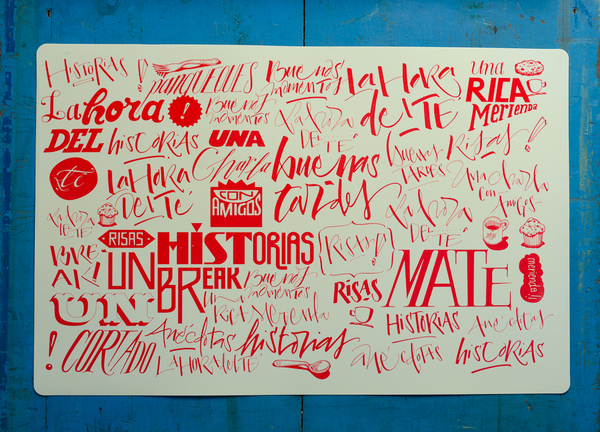 Historias
!
panqueques
Buenos momentos
La Hora del TE
una RICA Merienda
La hora
!
Buenos momentos
La hora DE TÉ
DEL historias
UNA
Charla
buenas tardes
buenas TARDES
Risas!
Te
La Hora del Té
CON AMIGOS
La hora DEL TÉ
Una charla con Amigos
La hora DE TÉ
RISAS
HISTORIAS
Risas!
BREAK!
UN BREAK
Buenos momentos
Risas
MATE
merienda
UN
UNA Rica Merienda
HISTORIAS
Anécdotas
! CORTADO
Anécdotas
historias
LA HORA DEL TÉ
anécdotas
historias